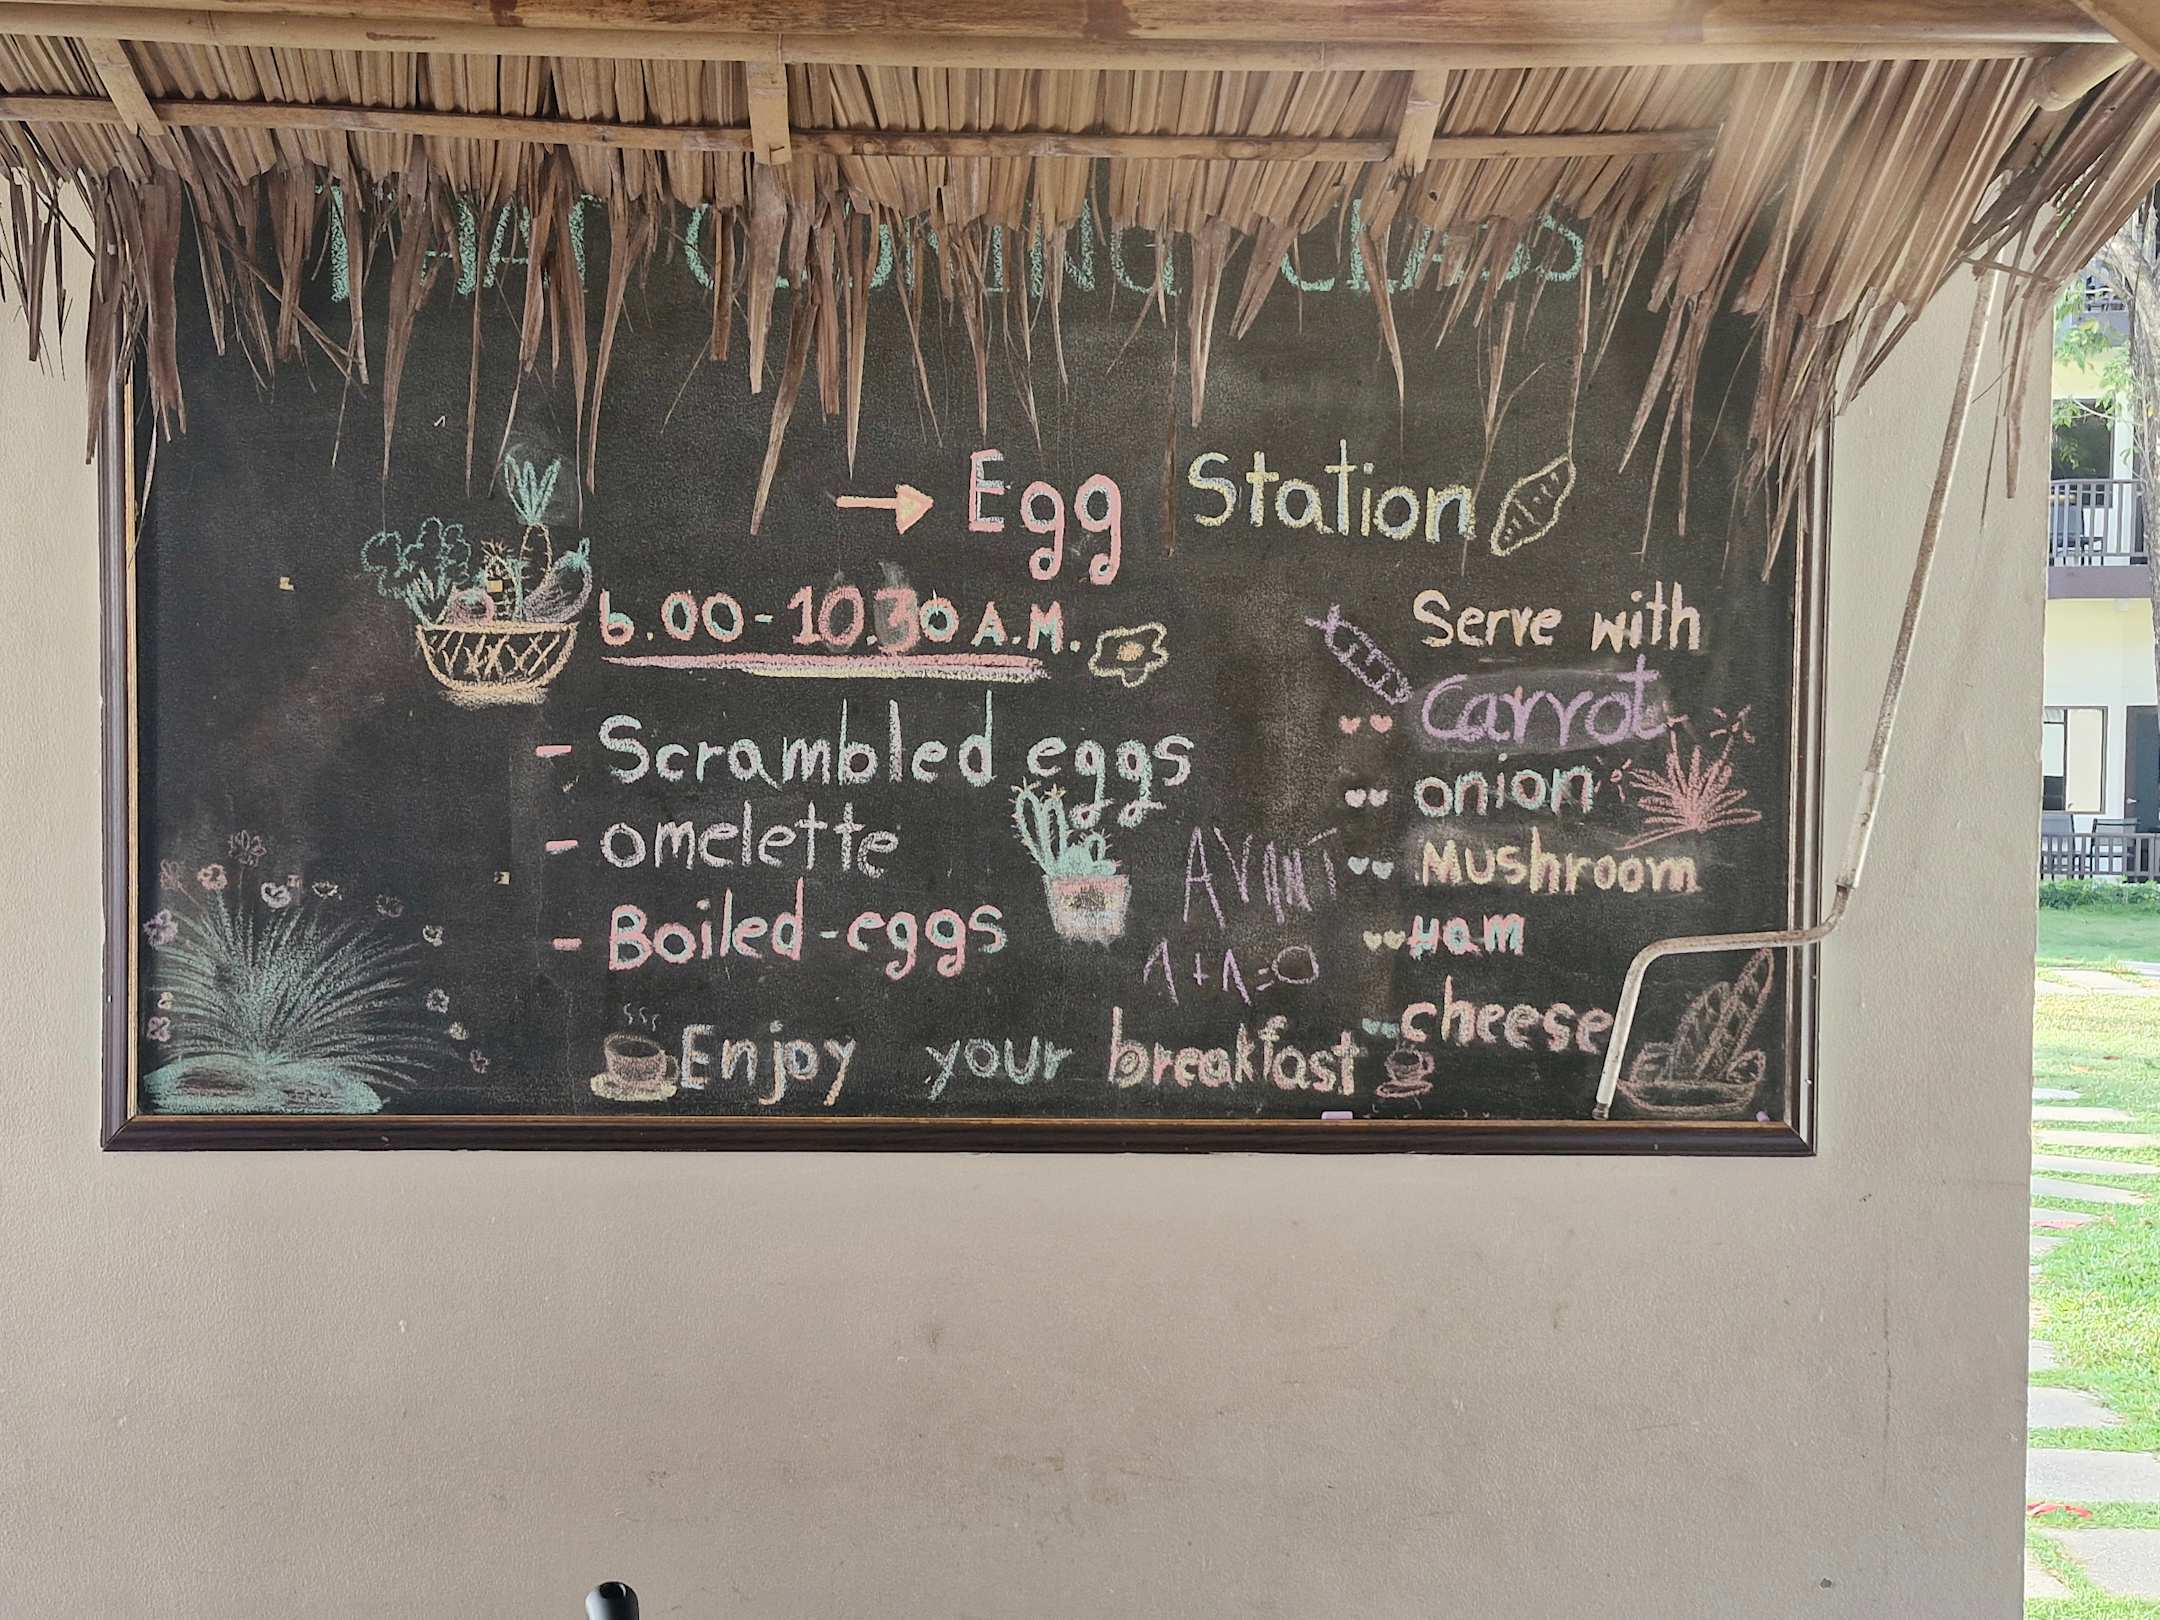 THAI COOKING CLASS
→ Egg Station
6.00 - 10.30 A.M.
- Scrambled eggs
- omelette
- Boiled-eggs
Serve with
Carrot
onion
Mushroom
Ham
cheese
1+1=0
Enjoy your breakfast